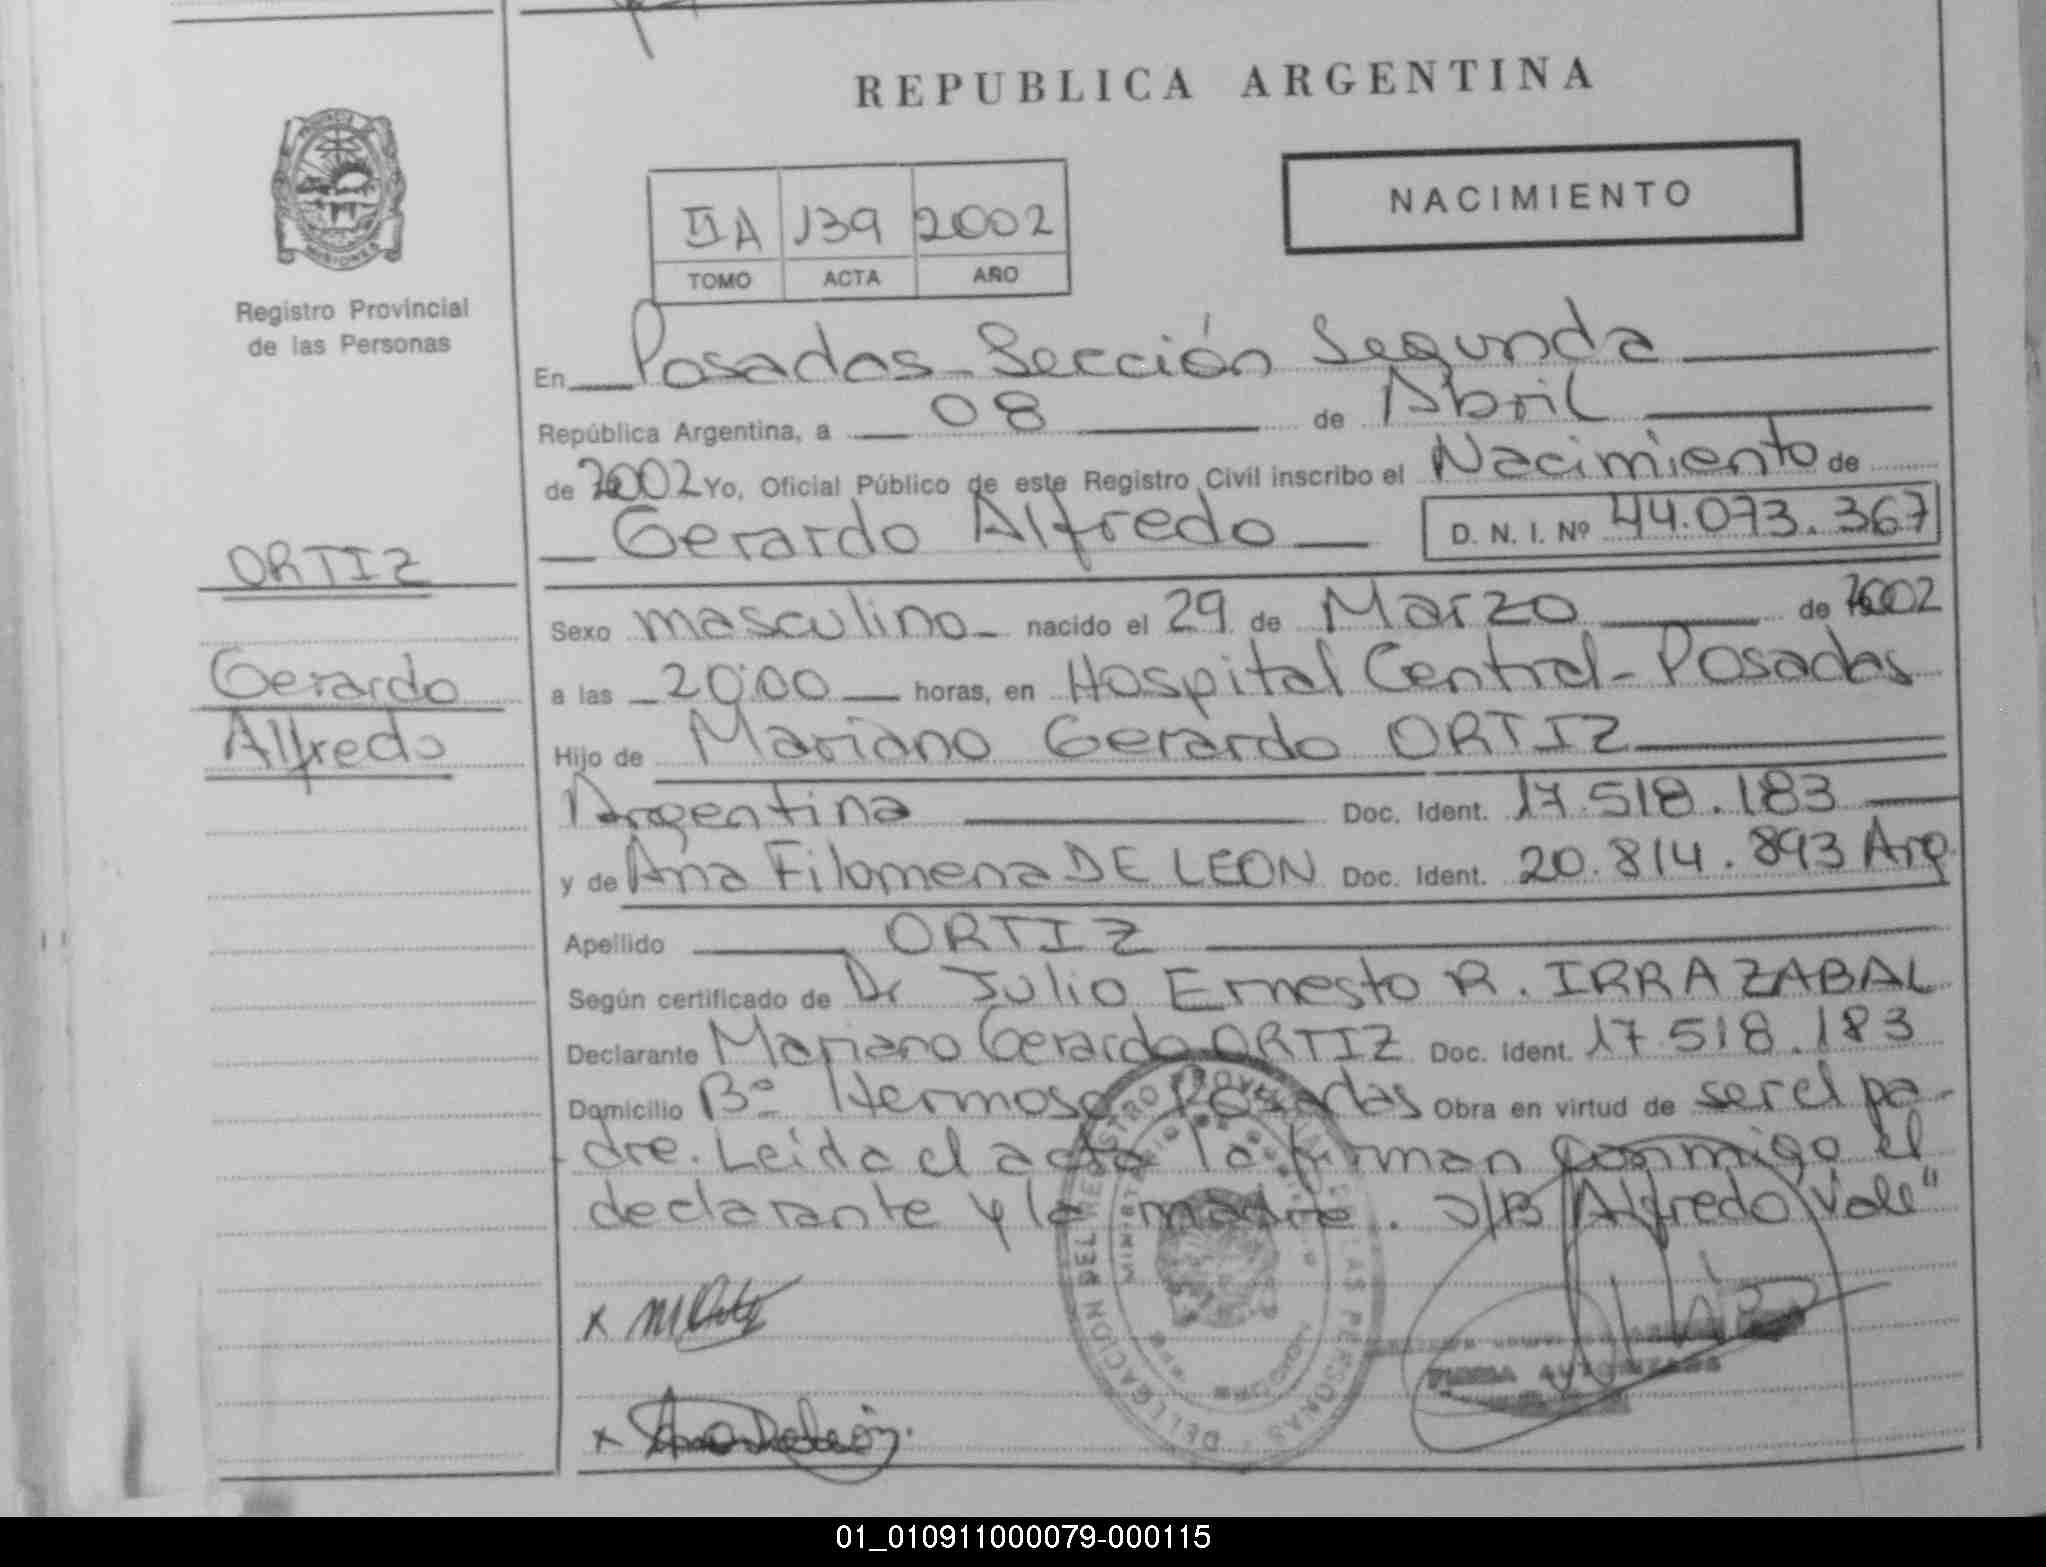 REPUBLICA ARGENTINA
NACIMIENTO
II A 139 2002
TOMO ACTA AÑO
PROVINCIA DE MISIONES
Registro Provincial
de las Personas
En Posadas - Sección Segunda
República Argentina, a 08 de Abril
de 2002 Yo, Oficial Público de este Registro Civil inscribo el Nacimiento de
Gerardo Alfredo D. N. I. Nº 44.073.367
ORTIZ
Gerardo
Alfredo
Sexo masculino - nacido el 29 de Marzo de 2002
a las 20:00 horas, en Hospital Central - Posadas
Hijo de Mariano Gerardo ORTIZ
Argentina Doc. Ident. 17.518.183
y de Ana Filomena DE LEON Doc. Ident. 20.814.893 Arg
Apellido ORTIZ
Según certificado de Dr Julio Ernesto R. IRRAZABAL
Declarante Mariano Gerardo ORTIZ Doc. Ident. 17.518.183
Domicilio Bº Hermoso Posadas Obra en virtud de ser el pa-
dre. Leida el acta la firman conmigo el
declarante y la madre. S/B "Alfredo Vale"
DELEGACION DEL REGISTRO PROVINCIAL DE LAS PERSONAS
MINISTERIO DE GOBIERNO
x
x Ana De León
FIRMA AUTORIZADA
01_010911000079-000115